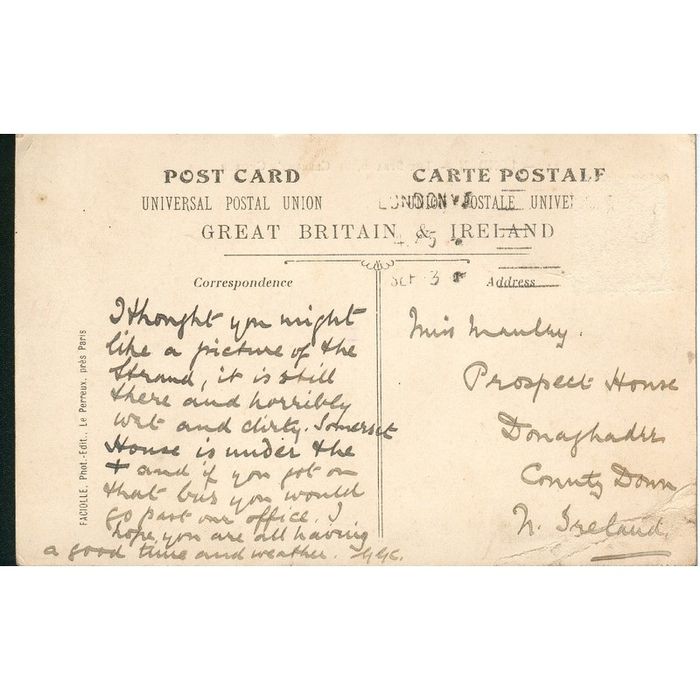 POST CARD
CARTE POSTALE
UNIVERSAL POSTAL UNION
UNION POSTALE UNIVER
LONDON
GREAT BRITAIN & IRELAND
4. 5
SEP 3
Correspondence
Address
I thought you might
like a picture of the
Strand, it is still
there and horribly
wet and dirty. Somerset
House is under the
+ and if you got on
that bus you would
go past our office. I
hope you are all having
a good time and weather.
Miss
Prospect House
Donaghadee
County Down
N. Ireland.
FACIOLLE, Phot.-Edit., Le Perreux, près Paris